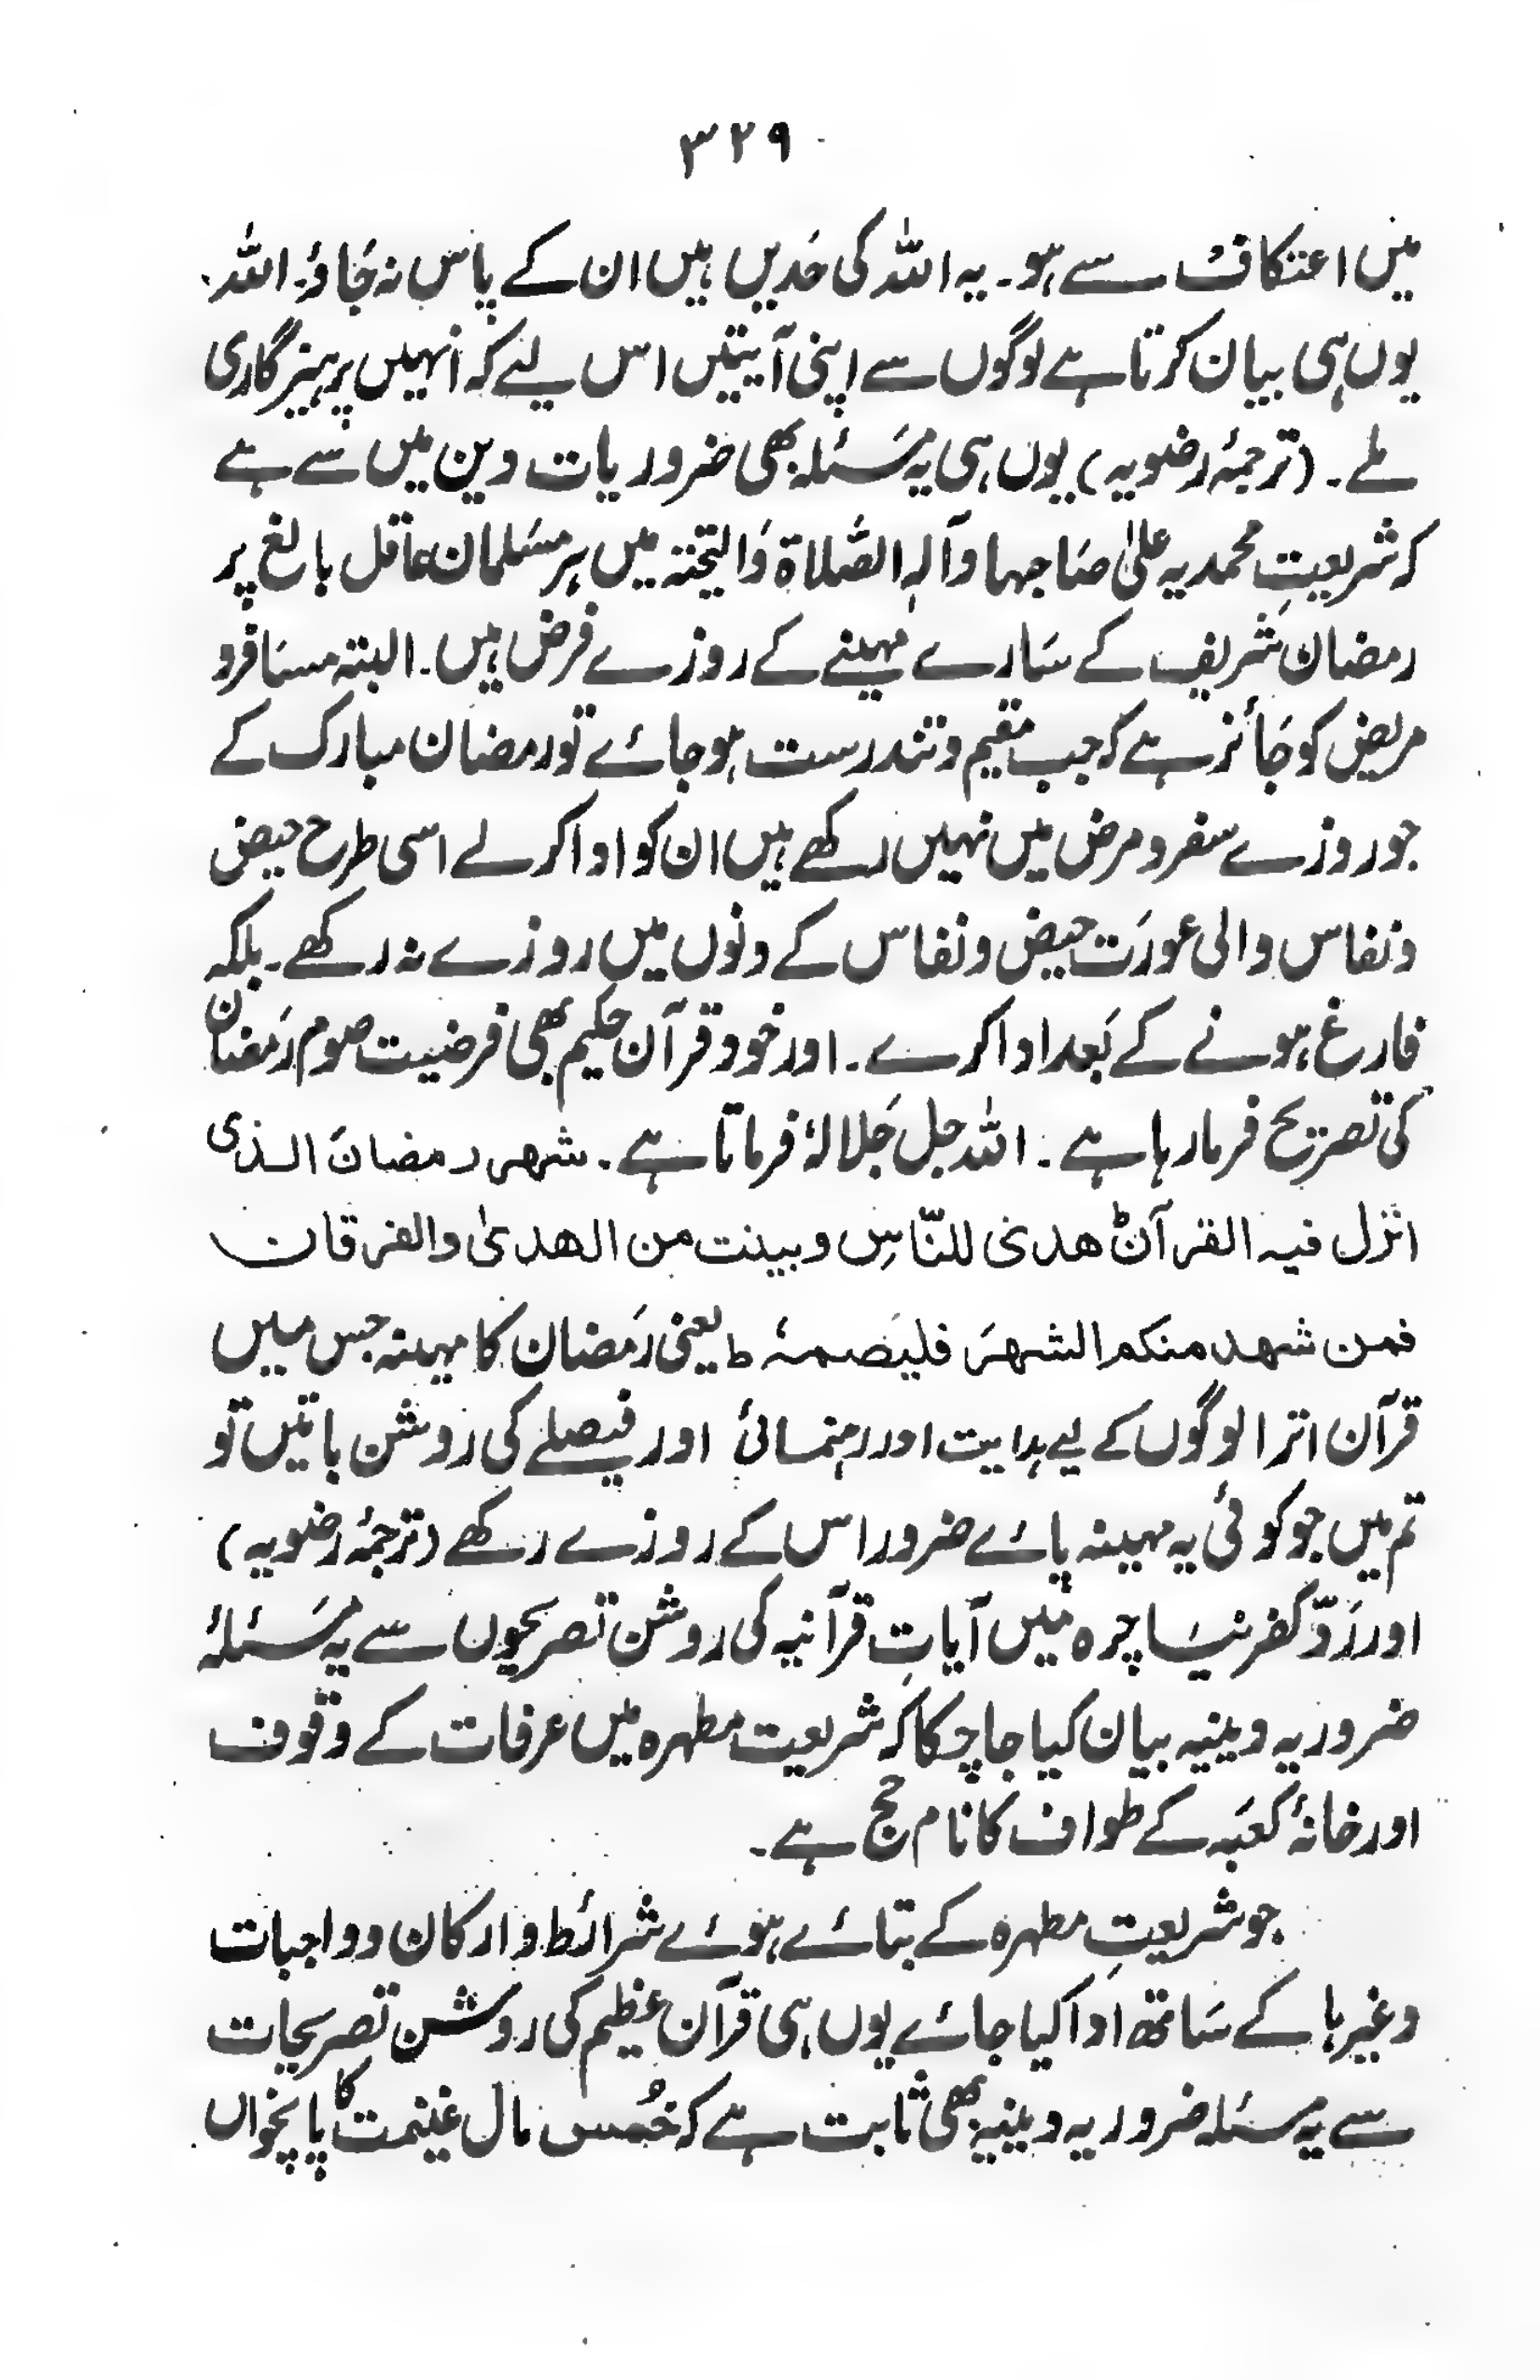 ۳۲۹
میں اعتکاف سے ہو۔ یہ اللہ کی حَدیں ہیں ان کے پاس نہ جَاؤ۔ اللہ
یوں ہی بیان کرتا ہے لوگوں سے اپنی آیتیں اس لیے کہ انہیں پرہیزگاری
ملے۔ (ترجمۂ رضویہ) یوں ہی یہ مَسئلہ بھی ضروریات دین میں سے ہے
کہ شریعتِ محمدیہ علیٰ صَاحبہا وآلہٖ الصَّلاۃ وَالتحیّۃ میں ہر مسَلمان عاقل بالغ پر
رمضان شریف کے سَارے مہینے کے روزے فرض ہیں۔ البتہ مسَافرو
مریض کو جَائز ہے کہ جب مقیم و تندرست ہوجائے تو رمضان مبارک کے
جو روزے سفر و مرض میں نہیں رکھے ہیں ان کو ادا کرلے اسی طرح حیض
و نفاس والی عورَت حیض و نفاس کے دنوں میں روزے نہ رکھے۔ بلکہ
فارغ ہونے کے بَعد ادا کرے۔ اور خود قرآن حکیم بھی فرضیت صوم رَمَضان
کی تصریح فرما رہا ہے۔ اللہ جل جَلالہٗ فرماتا ہے۔ شھر رمضانَ الذی
انزل فیہ القرآنُ ھدی للنّاسِ وبینت من الھدیٰ والفرقان
فمن شھد منکم الشھرَ فلیَصمہٗ ط یعنی رَمضان کا مہینہ جس میں
قرآن اترا لوگوں کے لیے ہدایت اور رہنمائی اور فیصلے کی روشن باتیں تو
تم میں جو کوئی یہ مہینہ پائے ضرور اس کے روزے رکھے (ترجمۂ رضویہ)
اور رَدّ کفر نیَساچرہ میں آیاتِ قرآنیہ کی روشن تصریحوں سے یہ مَسئلۂ
ضروریہ دینیہ بیان کیا جا چکا کہ شریعت مطہرہ میں عرفات کے وقوف
اور خانۂ کعَبہ کے طواف کا نام حج ہے۔
جو شریعتِ مطہرہ کے بتائے ہوئے شرائط و ارکان و واجبات
وغیرہا کے سَاتھ ادا کیا جائے یوں ہی قرآن عظیم کی روشن تصریحات
سے یہ مسئلہ ضروریہ دینیہ بھی ثابت ہے کہ خُمس مال غنیمت کا پانچواں